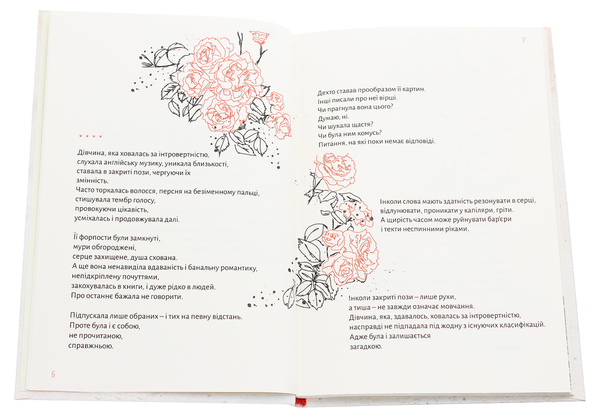 * * * *
Дівчина, яка ховалась за інтровертністю,
слухала англійську музику, уникала близькості,
ставала в закриті пози, чергуючи їх
змінність.
Часто торкалась волосся, персня на безіменному пальці,
стишувала тембр голосу,
провокуючи цікавість,
усміхалась і продовжувала далі.
Її форпости були замкнуті,
мури обгороджені,
серце захищене, душа схована.
А ще вона ненавиділа вдаваність і банальну романтику,
непідкріплену почуттями,
закохувалась в книги, і дуже рідко в людей.
Про останнє бажала не говорити.
Підпускала лише обраних – і тих на певну відстань.
Проте була і є собою,
не прочитаною,
справжньою.
6
7
Дехто ставав прообразом її картин.
Інші писали про неї вірші.
Чи прагнула вона цього?
Думаю, ні.
Чи шукала щастя?
Чи була ним комусь?
Питання, на які поки немає відповіді.
Інколи слова мають здатність резонувати в серці,
відлунювати, проникати у капіляри, гріти.
А щирість часом може руйнувати бар'єри
і текти неспинними ріками.
Інколи закриті пози – лише рухи,
а тиша – не завжди означає мовчання.
Дівчина, яка, здавалось, ховалась за інтровертністю,
насправді не підпадала під жодну з існуючих класифікацій.
Адже була і залишається
загадкою.